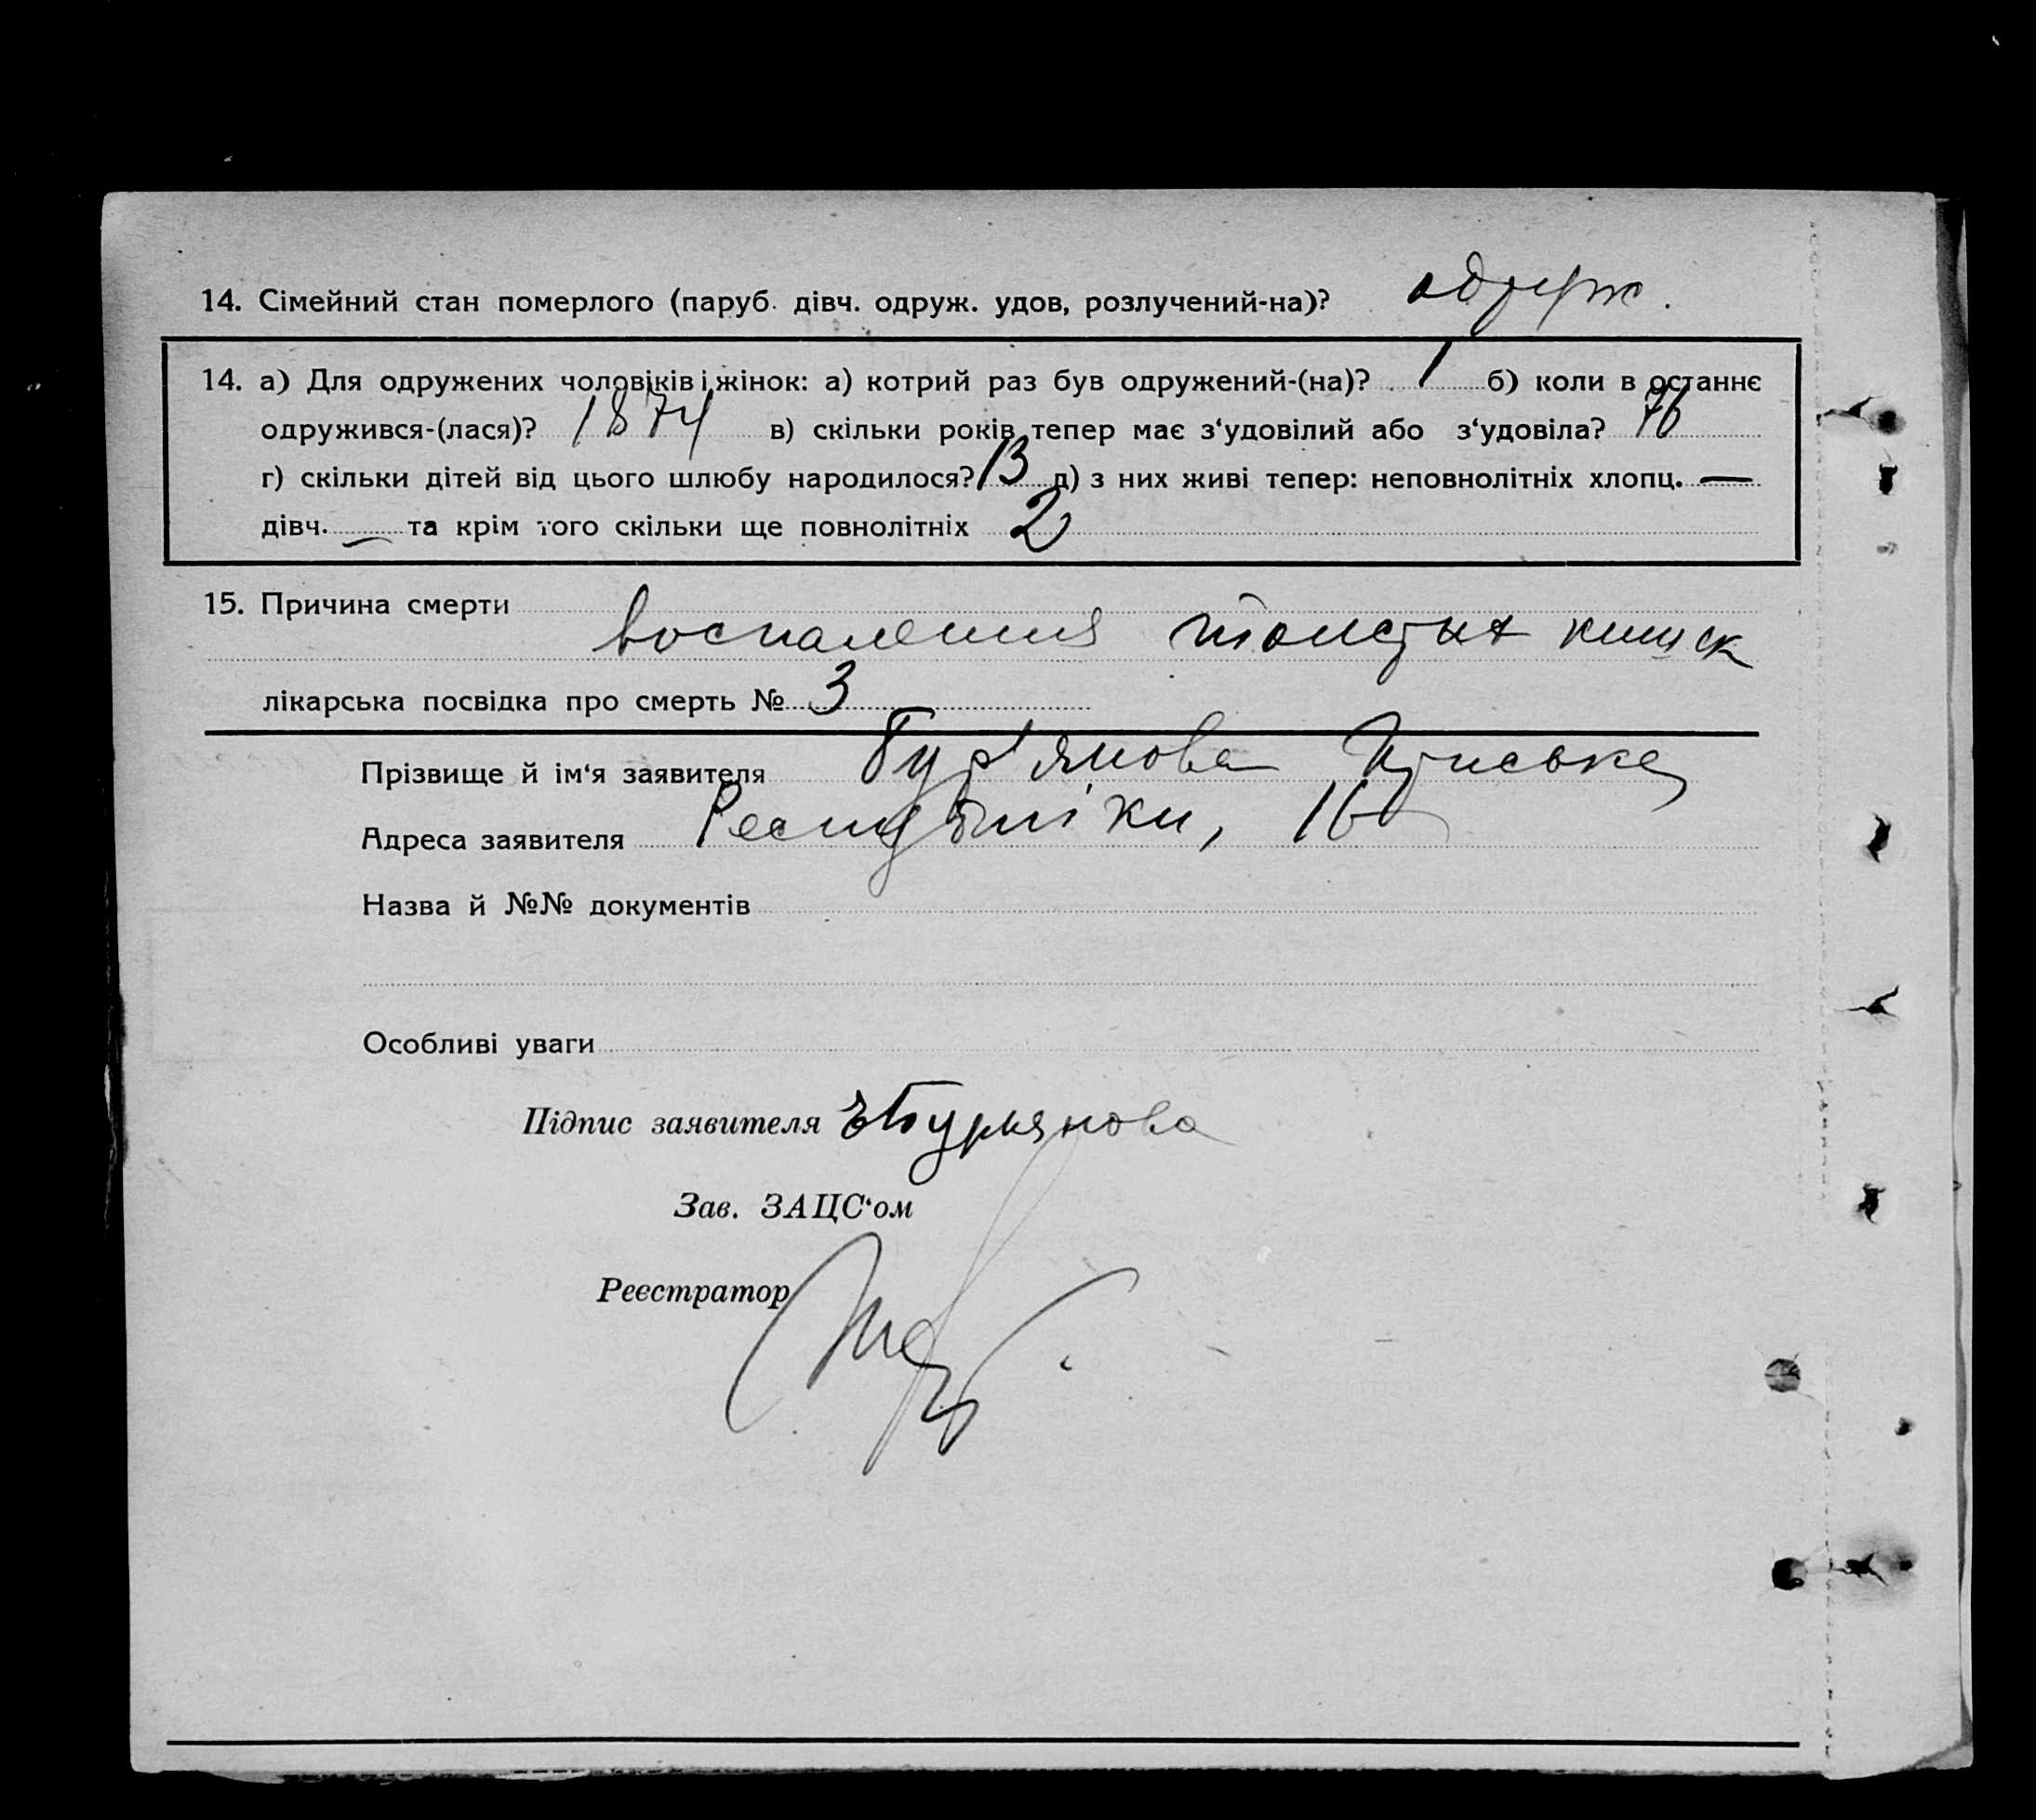 14. Сімейний стан померлого (паруб. дівч. одруж. удов, розлучений-на)? одруж.
14. а) Для одружених чоловіків і жінок: а) котрий раз був одружений-(на)? 1 б) коли в останнє
одружився-(лася)? 1874 в) скільки років тепер має з‘удовілий або з‘удовіла? 76
г) скільки дітей від цього шлюбу народилося? 13 д) з них живі тепер: неповнолітніх хлопц. —
дівч. — та крім того скільки ще повнолітніх 2
15. Причина смерти
воспаления толстых кишек
лікарська посвідка про смерть № 3
Прізвище й ім‘я заявителя Бур'янова
Адреса заявителя Республіки, 16
Назва й №№ документів
Особливі уваги
Підпис заявителя Бурьянова
Зав. ЗАЦС‘ом
Реєстратор